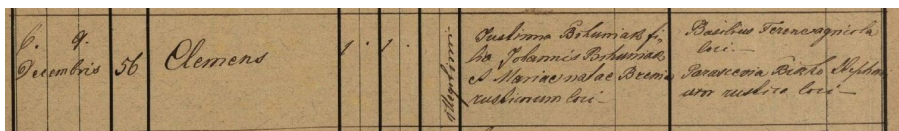 6. 9.
Decembris
56
Clemens
1. 1.
illegitimi
Justinna Bohuniak fi-
lia Johannis Bohuniak
et Mariae natae
rusticorum loci —
Basilius agricola
loci —
Parascevia Stephani
uxor rustica loci —